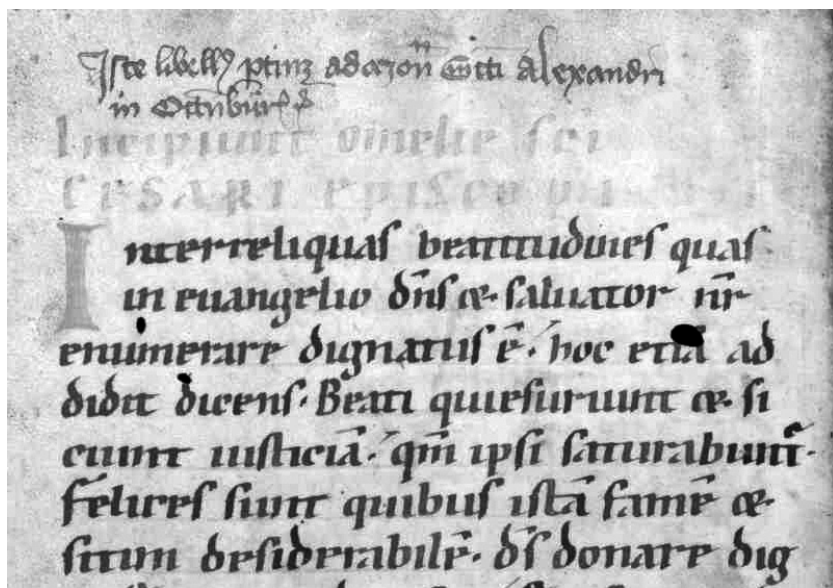 Iste libellꝯ ꝑtinꝫ ad
alexandri
in Ottn̄bur̄
Incipiunt omelie sc̄i
CESARI EPISCOPI
Inter reliquas beatitudines quas
in euangelio dn̄s & saluator nr̄
enumerare dignatus ē. hoc etiā ad
didit dicens. Beati qui esuriunt & si
ciunt iusticiā. qm̄ ipsi saturabunt̄.
Felices sunt quibus istā famē &
sitim desiderabilē. ds̄ donare dig